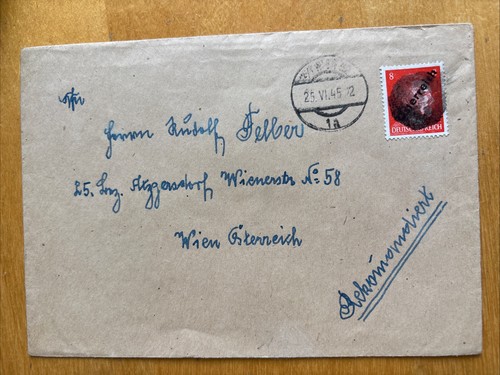 Herrn Rudolf Felber
25. Bez. Atzgersdorf, Wienerstr No: 58
Wien Österreich
Rekomandiert
25.VI.45
1a
8
Österreich
DEUTSCHES REICH